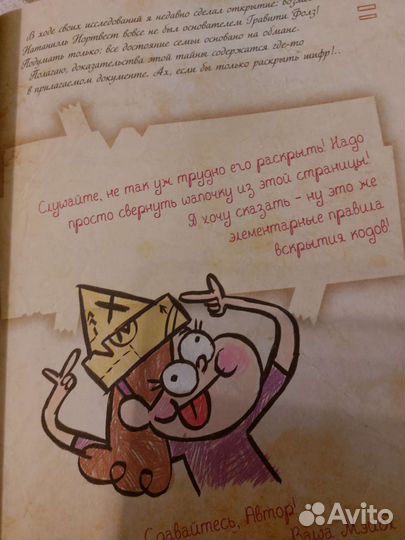 В ходе своих исследований я недавно сделал открытие:
Натаниэль Нортвест вовсе не был основателем Гравити Фолз!
Подумать только: все достояние семьи основано на обмане.
Полагаю, доказательства этой тайны содержатся где-то
в прилагаемом документе. Ах, если бы только раскрыть шифр!..
Слушайте, не так уж трудно его раскрыть! Надо
просто свернуть шапочку из этой страницы!
Я хочу сказать - ну это же
элементарные правила
вскрытия кодов!
Сдавайтесь, Автор!
Ваша
Avito